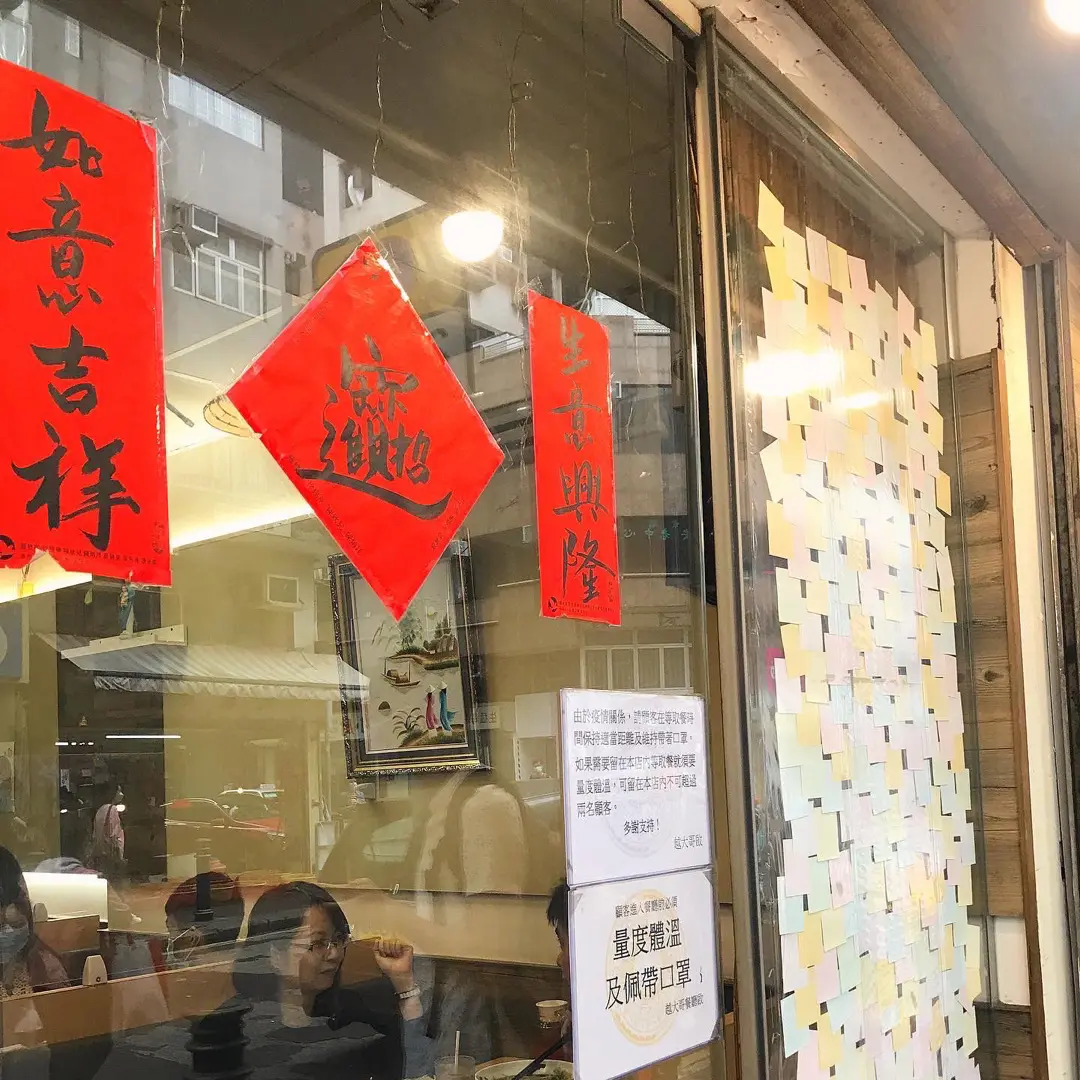 如意吉祥
招財進寶
生意興隆
由於疫情關係，請顧客在等取餐時
間保持適當距離及維持帶著口罩。
如果需要留在本店內等取餐就須要
量度體溫，可留在本店內不可超過
兩名顧客。
多謝支持！
越大哥啟
顧客進入餐廳前必須
量度體溫
及佩帶口罩
越大哥餐廳啟